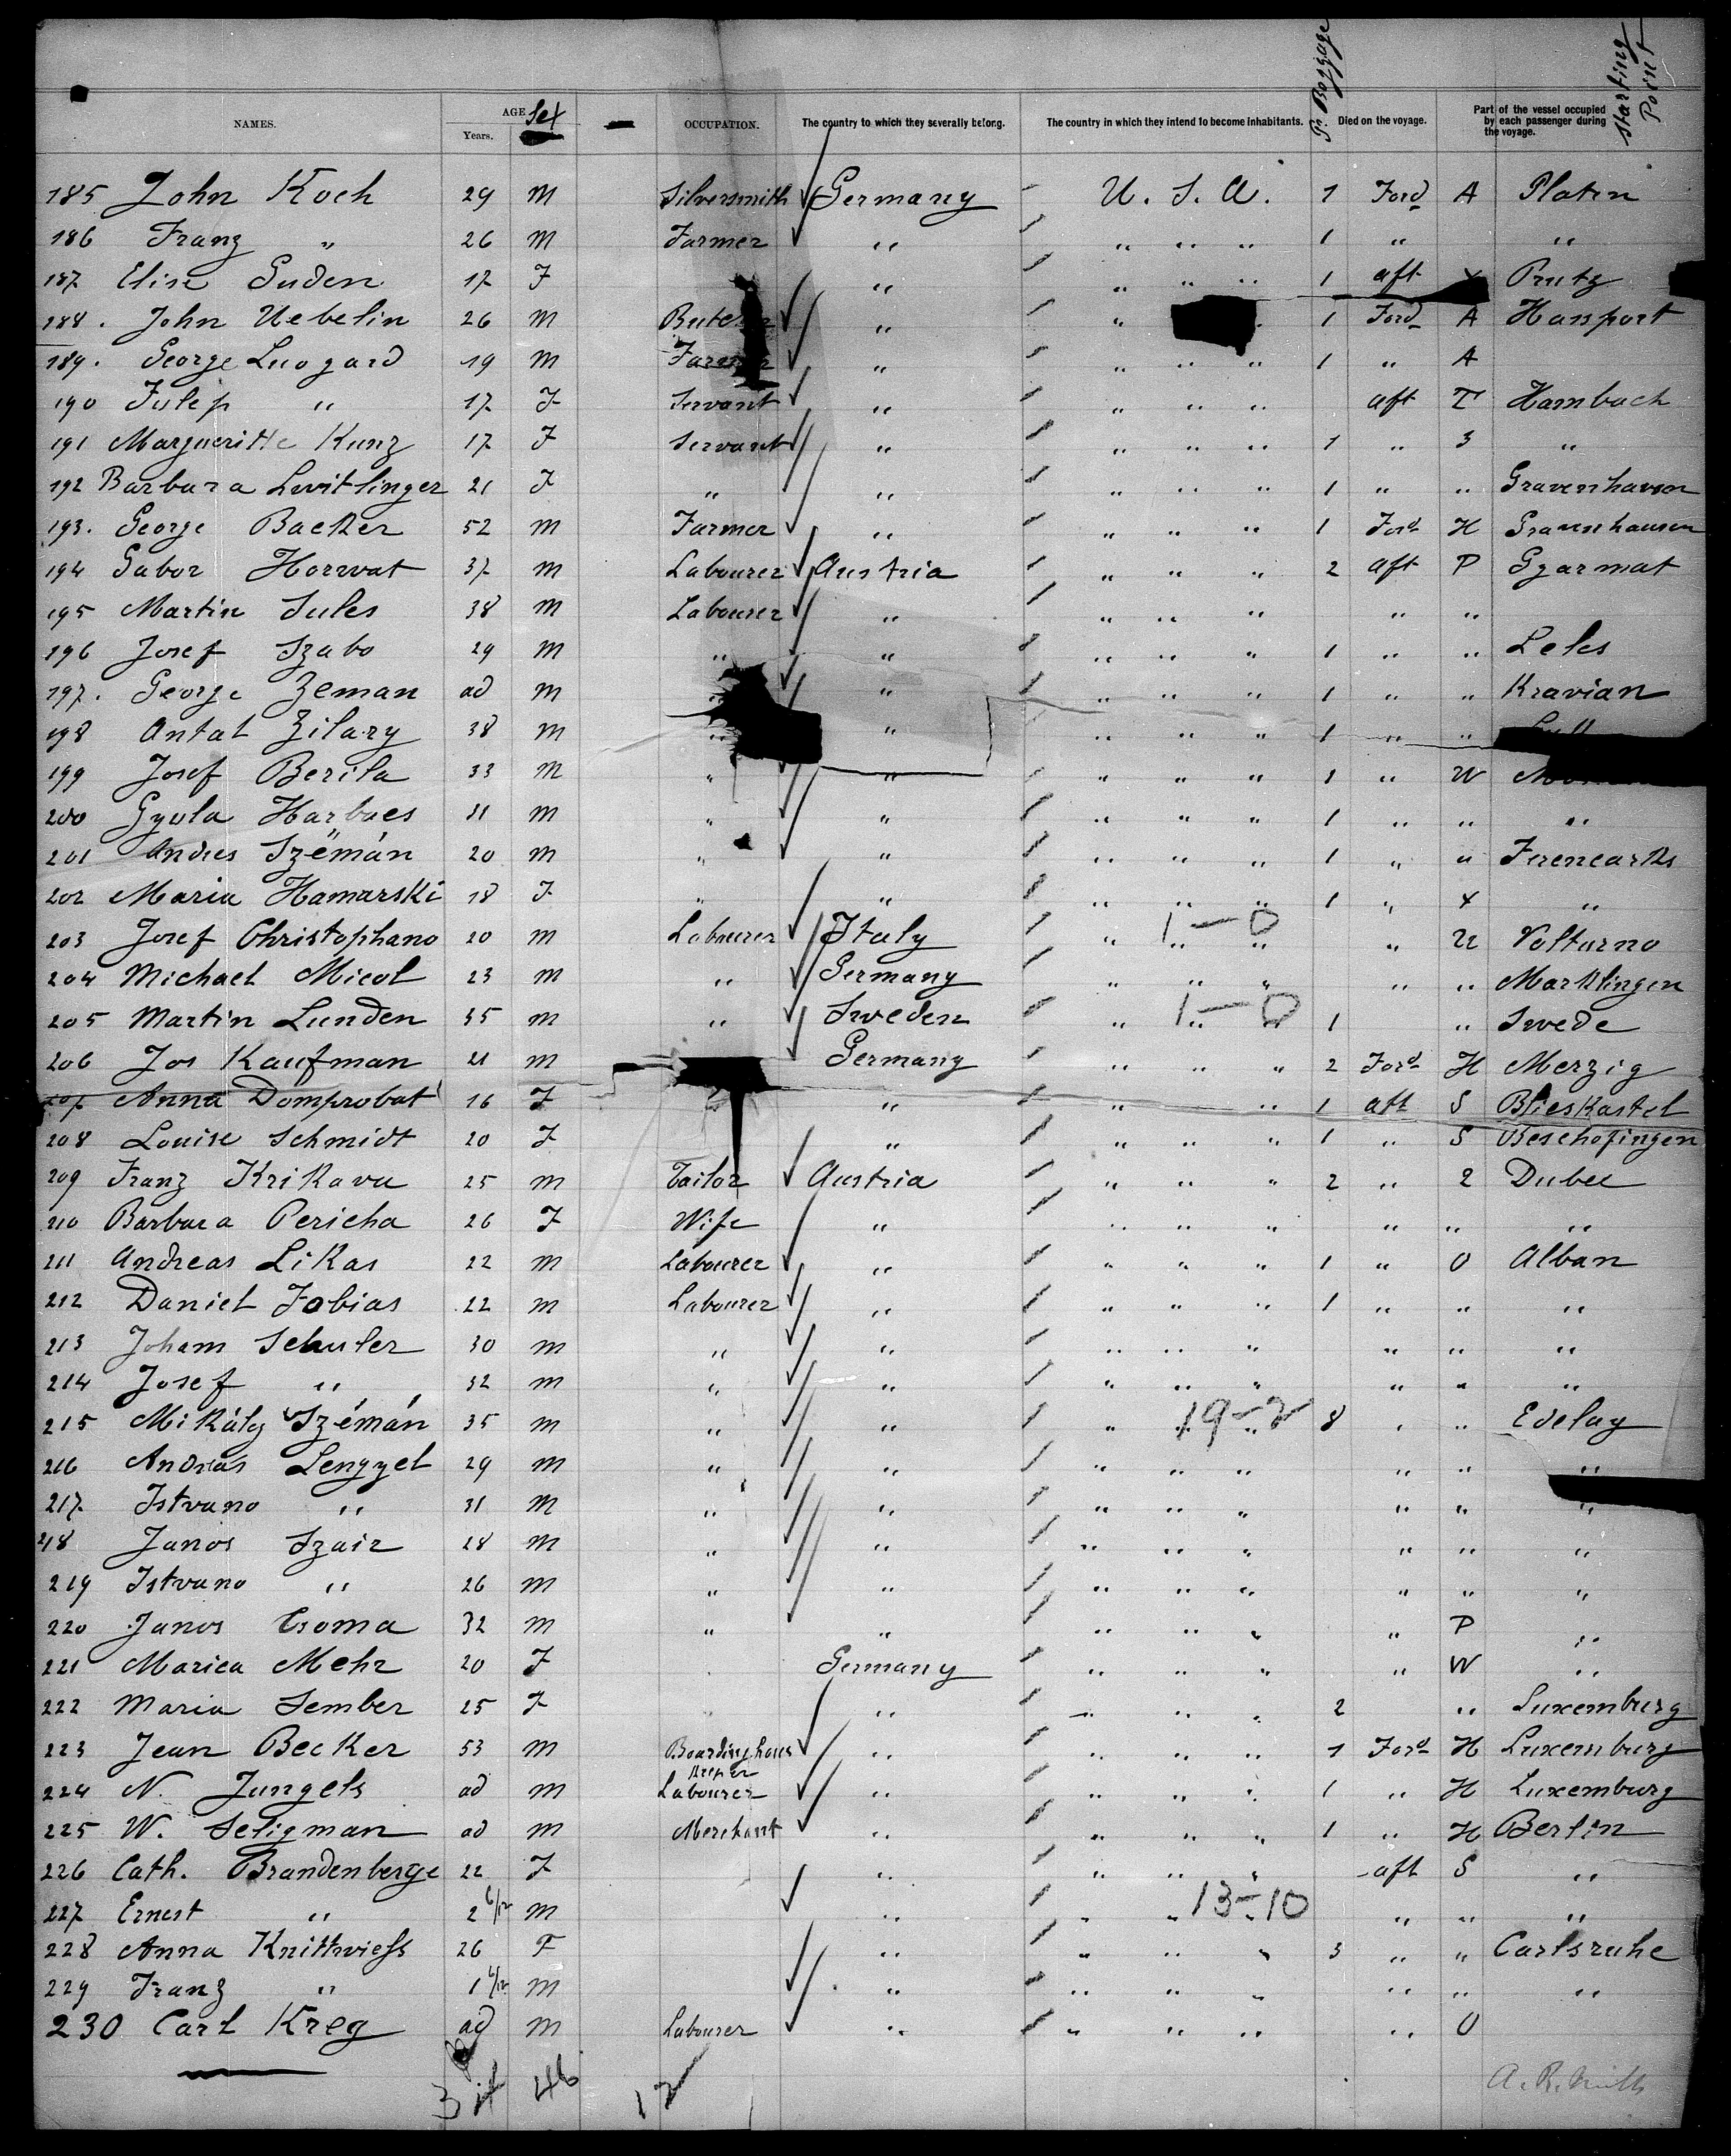 Pr. Baggage Starting Point
NAMES. AGE Sex Years. OCCUPATION. The country to which they severally belong. The country in which they intend to become inhabitants. Died on the voyage. Part of the vessel occupied by each passenger during the voyage.
185 John Koch 29 M Silversmith Germany U. S. A. 1 Ford A Platen
186 Franz " 26 M Farmer " " " " 1 " "
187 Elise Guden 17 F " " " " 1 aft Prutz
188. John Uebelin 26 M Butcher " " 1 Ford A Hansport
189. George Luogard 19 M Farmer " " " " 1 " A
190 " 17 F Servant " " " " aft T Hambach
191 Margueritte Kunz 17 F Servant " " " " 1 " 3 "
192 Barbara Lwitlinger 21 F " " " " " 1 " " Gravenhausen
193. George Backer 52 M Farmer " " " " 1 Ford H Gravenhausen
194 Gabor Horwat 37 M Labourer Austria " " " 2 aft P Gyarmat
195 Martin Sules 38 M Labourer " " " " " "
196 Josef Szabo 29 M " " " " " 1 " " Leles
197. George Zeman ad M " " " " " 1 " " Kravian
198 Antal Zilary 38 M " " " " " 1 " "
199 Josef Berila 33 M " " " " " 1 " W
200 Gyula Harbaes 31 M " " " " " 1 " " "
201 Andres Szémán 20 M " " " " " 1 " " Ferencarks
202 Maria Hamarski 18 F " " " " " 1 " x "
203 Josef Christophano 20 M Labourer Italy " " " 1-0 " U Volturno
204 Michael Micol 23 M " Germany " " " " " Marklingen
205 Martin Lunden 35 M " Sweden " " " 1-0 1 " Swede
206 Jos Kaufman 21 M Germany " " " 2 Ford H Merzig
207 Anna Domprobat 16 F " " " 1 aft S Blieskastel
208 Louise Schmidt 20 F " " " " 1 " S Beschofingen
209 Franz Krikava 25 M Tailor Austria " " " 2 " 2 Dubec
210 Barbara Pericha 26 F Wife " " " " " " "
211 Andreas Likas 22 M Labourer " " " " 1 " O Alban
212 Daniel Tobias 22 M Labourer " " " " 1 " " "
213 Joham Schuler 30 M " " " " " " " "
214 Josef " 32 M " " " " " " " "
215 Mikály Szémán 35 M " " " " " 19-2 8 " " Edelay
216 Andras Lengyel 29 M " " " " " " " "
217 Istvano " 31 M " " " " " " " "
218 Janos Szair 28 M " " " " " " " "
219 Istvano " 26 M " " " " " " " "
220 Janos Csoma 32 M " " " " " " P "
221 Marica Mehr 20 F Germany " " " " W "
222 Maria Sember 25 F " " " " 2 " Luxemburg
223 Jean Becker 53 M Boardinghous keeper " " " " 1 Ford H Luxemburg
224 N. Jungels ad M Labourer " " " " 1 " H Luxemburg
225 W. Seligman ad M Merchant " " " " 1 " H Berlin
226 Cath. Brandenberge 22 F " " " " aft S "
227 Ernest " 2 6/12 M " " " " 13-10 " " "
228 Anna Knittwiess 26 F " " " " 3 " " Carlsruhe
229 Franz " 1 6/12 M " " " " " " "
230 Carl Kreg ad M Labourer " " " " " O
3 46 12